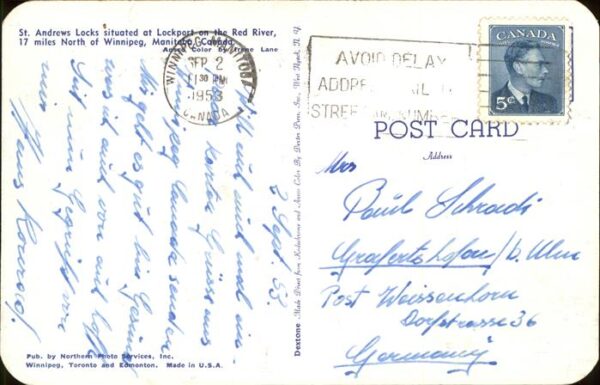 St. Andrews Locks situated at Lockport on the Red River,
17 miles North of Winnipeg, Manitoba, Canada.
Ansco Color by Irene Lane
WINNIPEG MANITOBA
SEP 2
11 30 PM
1953
CANADA
AVOID DELAY
ADDRE MAIL
STREET NUMBER
CANADA
5¢
POST CARD
Address
2 Sept 53.
Will euch mal ein-
kurzen Grüsse aus
Winnipeg Canada senden
Mir geht es gut hier Genau
von euch
Seit nun Gegrüsst von
eurer
Hans Konrad!
Dextone Made Direct from Kodachrome and Ansco Color By Dexter Press, Inc., West Nyack, N. Y.
Mrs
Paul Schradi
Grafertshofen/b. Ulm
Post Weissenhorn
Dorfstrasse 36
Germany
Pub. by Northern Photo Services, Inc.
Winnipeg, Toronto and Edmonton. Made in U.S.A.